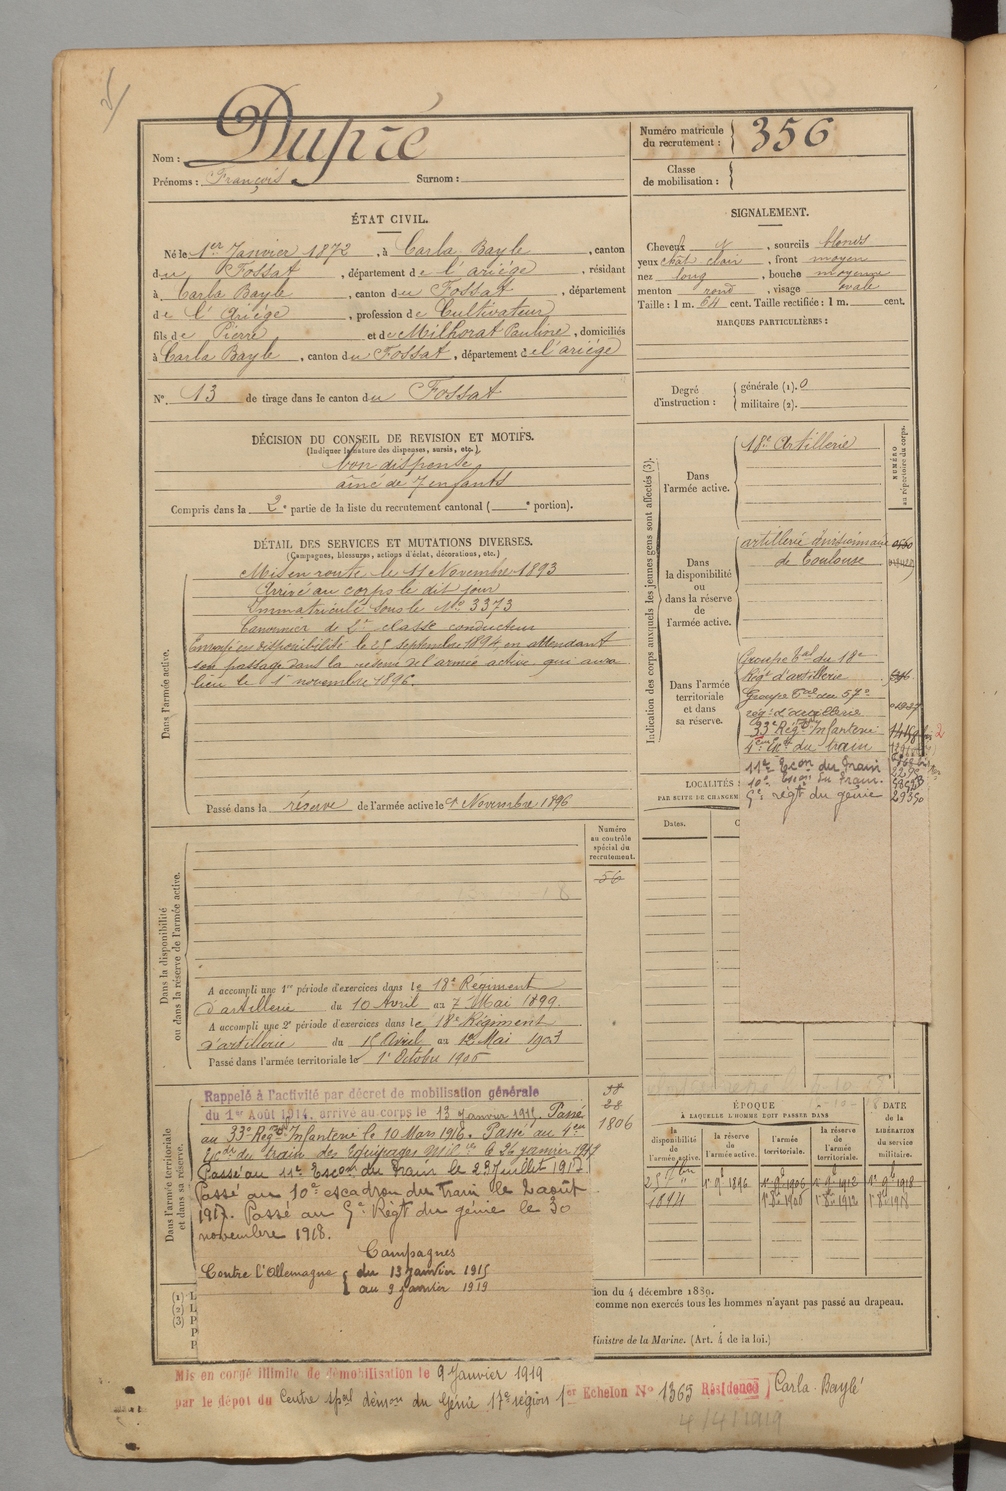 Nom : Dupré
Prénoms : François Surnom :
Numéro matricule du recrutement : 356
Classe de mobilisation :
ÉTAT CIVIL.
Né le 1er Janvier 1872, à Carla Bayle, canton
du Fossat, département de l'ariége, résidant
à Carla Bayle, canton du Fossat, département
de l'Ariége, profession de Cultivateur
fils de Pierre et de Milhorat Pauline, domiciliés
à Carla Bayle, canton du Fossat, département de l'ariége
N° 13 de tirage dans le canton du Fossat
SIGNALEMENT.
Cheveux , sourcils blonds
yeux chât clair, front moyen
nez long, bouche moyenne
menton rond, visage ovale
Taille : 1 m. 64 cent. Taille rectifiée : 1 m. cent.
MARQUES PARTICULIÈRES :
Degré d'instruction : générale (1). 0
militaire (2).
DÉCISION DU CONSEIL DE REVISION ET MOTIFS.
(Indiquer la nature des dispenses, sursis, etc.)
bon dispensé
aîné de 7 enfants
Compris dans la 2e partie de la liste du recrutement cantonal ( e portion).
DÉTAIL DES SERVICES ET MUTATIONS DIVERSES.
(Campagnes, blessures, actions d'éclat, décorations, etc.)
Dans l'armée active.
Mis en route le 11 Novembre 1893
Arrivé au corps le dit jour
Immatriculé sous le No 3373
Canonnier de 2e classe conducteur
Envoyé en disponibilité le 25 septembre 1894, en attendant
son passage dans la réserve de l'armée active qui aura
lieu le 1er novembre 1896.
Passé dans la réserve de l'armée active le 1er Novembre 1896
Numéro au contrôle spécial du recrutement.
56
Dans la disponibilité ou dans la réserve de l'armée active.
A accompli une 1re période d'exercices dans le 18e Régiment
d'artillerie du 10 Avril au 7 Mai 1899.
A accompli une 2e période d'exercices dans le 18e Régiment
d'artillerie du 15 Avril au 12 Mai 1903
Passé dans l'armée territoriale le 1er Octobre 1906
Dans l'armée territoriale et dans sa réserve.
Rappelé à l'activité par décret de mobilisation générale
du 1er Août 1914, arrivé au corps le 13 Janvier 1915. Passé
au 33e Régt d'Infanterie le 10 Mars 1916. Passé au 4em
Escdon du train des Equipages Mil res le 26 janvier 1917
Passé au 11e Escon du Train le 23 Juillet 1917.
Passé au 10e escadron du Train le 2 août
1917. Passé au 5e Régt du génie le 30
novembre 1918.
Campagnes
Contre l'Allemagne du 13 janvier 1915
au 9 janvier 1919
1806
Indication des corps auxquels les jeunes gens sont affectés (3).
NUMÉRO au répertoire du corps.
Dans l'armée active.
18e Artillerie
Dans la disponibilité ou dans la réserve de l'armée active.
artillerie divisionnaire
de Toulouse
Dans l'armée territoriale et dans sa réserve.
Groupe tal du 18e
Régt d'artillerie
Groupe tal du 57e
régt d'artillerie
33e Régt Infanterie
4em Escon du train
11e Escon du Train
10e Escon du Train.
5e régt du génie
LOCALITÉS
PAR SUITE DE CHANGEM
Dates.
ÉPOQUE
À LAQUELLE L'HOMME DOIT PASSER DANS
la disponibilité de l'armée active.
la réserve de l'armée active.
l'armée territoriale.
la réserve de l'armée territoriale.
DATE de la LIBÉRATION du service militaire.
25 7bre 1894
1er 9e 1896
1er 9e 1906
1er 9e 1912
1er 9e 1918
(1) L
(2) L
(3) P
ion du 4 décembre 1889.
comme non exercés tous les hommes n'ayant pas passé au drapeau.
Ministre de la Marine. (Art. 4 de la loi.)
Mis en congé illimité de démobilisation le 9 Janvier 1919
par le dépôt du Centre spal démon du Génie 17e région 1er Echelon N° 1365 Résidence Carla Baylé
4/4/1919